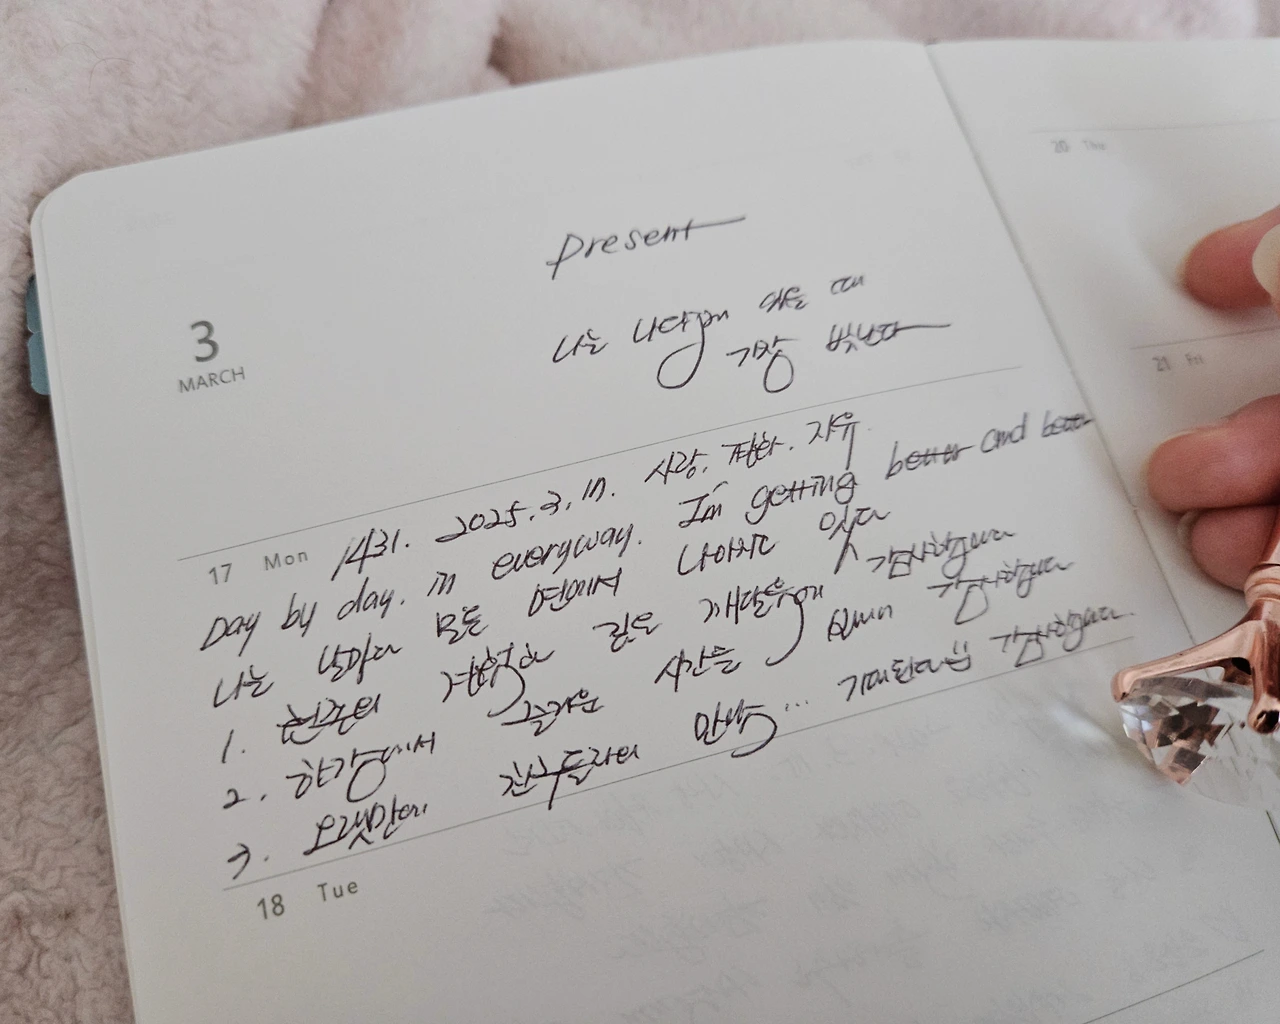 present
나는 나다울 때
가장 빛난다
3
MARCH
20 Thu
21 Fri
17 Mon 1431. 2025.3.17. 사랑. 평화. 자유.
Day by day. in everyway. I'm getting better and better
나는 날마다 모든 면에서 나아지고 있다
1. 현준의 경험과 깊은 깨달음에 감사합니다
2. 한강에서 즐거운 시간들 감사합니다
3. 오랫만에 친구들과의 만남... 기대된다 감사합니다.
18 Tue